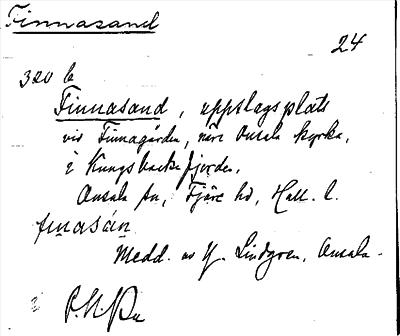 Finnasand
24
320 b
Finnasand, uppslagsplats
vid Finnagården, nära Onsala kyrka,
i Kungsbackafjorden,
Onsala sn, Fjäre hd, Hall. l.
fınasán
Medd. av Lindgren, Onsala.